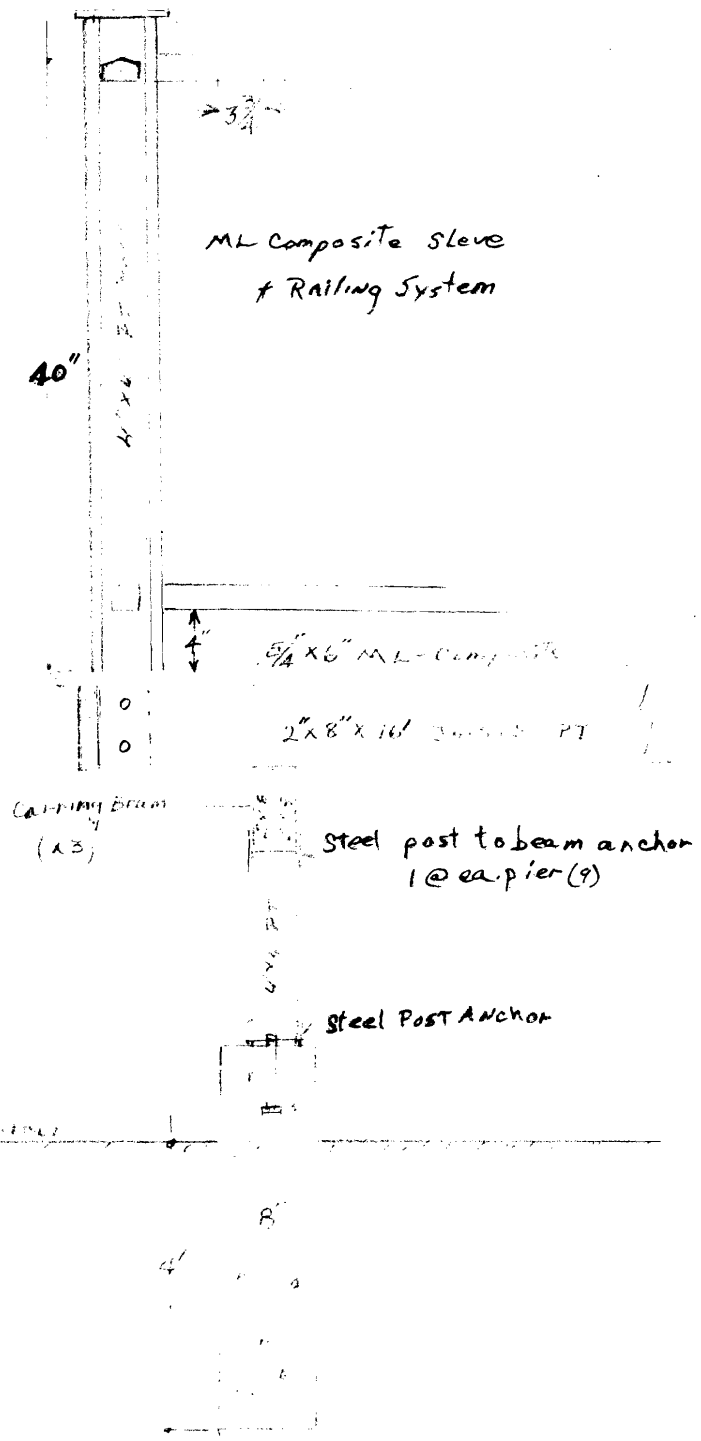 3 3/4
ML Composite Sleve
+ Railing System
4"x6 PT
40"
4"
5/4" x 6" ML-Composite
2" x 8" x 16' PT
Carrying Beam
(x3)
Steel post to beam anchor
1 @ ea. pier (9)
4x6 PT
Steel Post Anchor
8"
4'